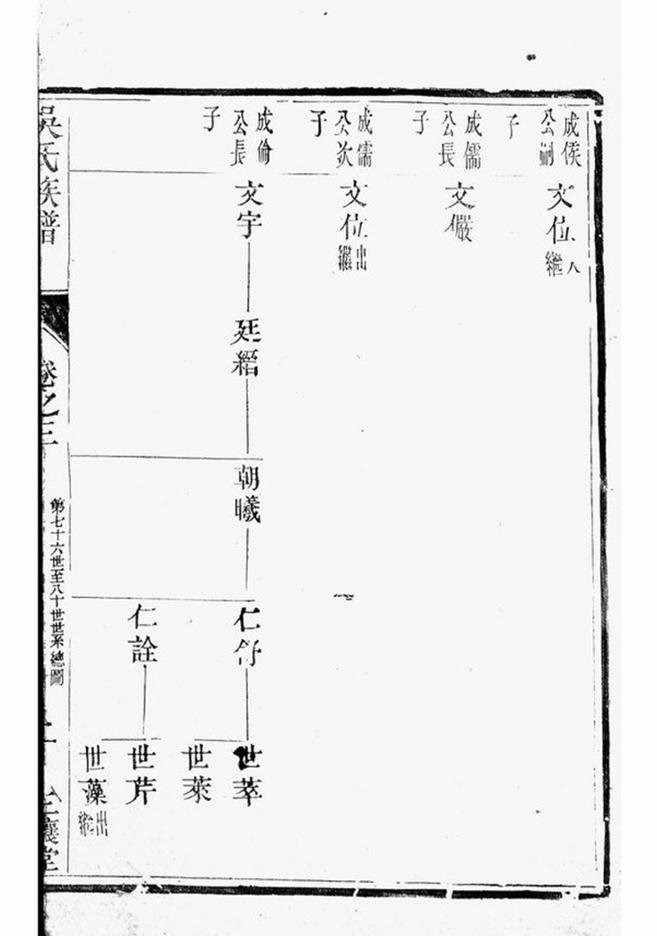 成侯公嗣子
文位入繼
成儒公長子
文儼
成儒公次子
文位出繼
成倫公長子
文宇
廷縉
朝曦
仁舒
世萃
世萊
仁詮
世芹
世藻出繼
吳氏族譜
卷之三
第七十六世至八十世世系總圖
三讓堂